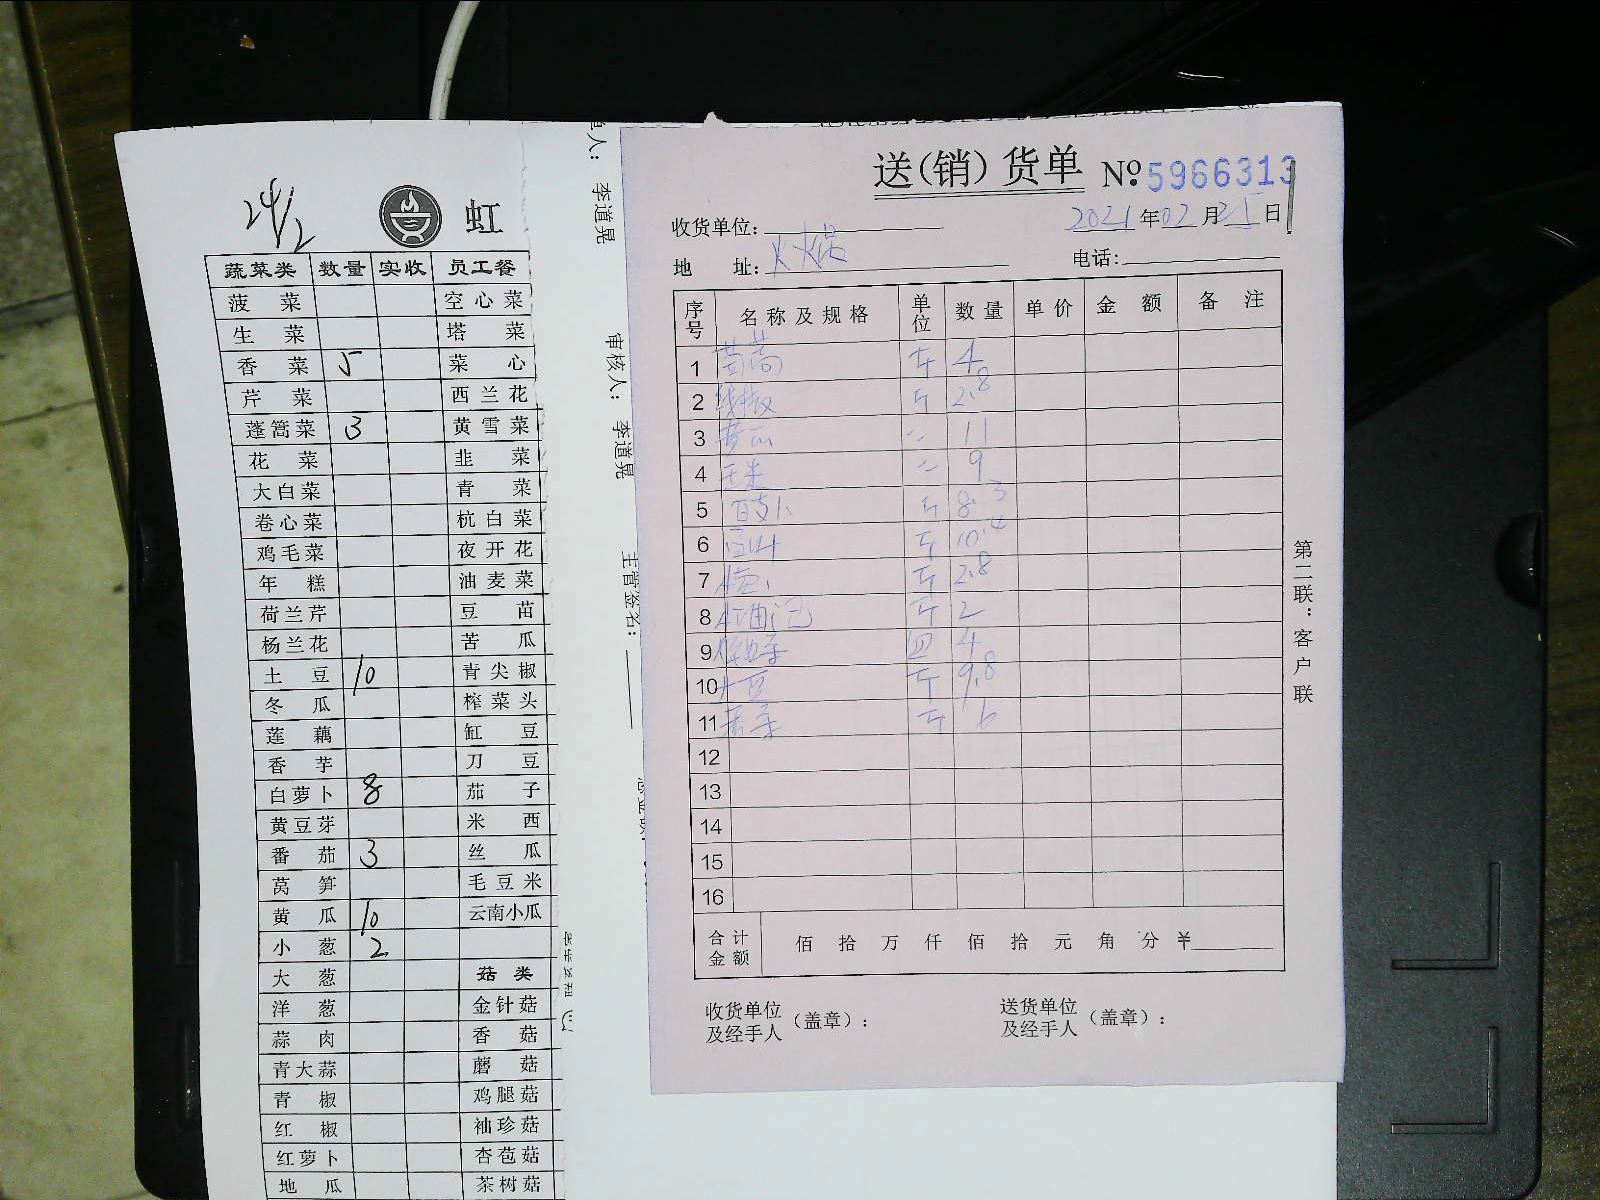 24/2
虹
蔬菜类 数量 实收 员工餐
菠菜 空心菜
生菜 塔菜
香菜 5 菜心
芹菜 西兰花
蓬篙菜 3 黄雪菜
花菜 韭菜
大白菜 青菜
卷心菜 杭白菜
鸡毛菜 夜开花
年糕 油麦菜
荷兰芹 豆苗
杨兰花 苦瓜
土豆 10 青尖椒
冬瓜 榨菜头
莲藕 缸豆
香芋 刀豆
白萝卜 8 茄子
黄豆芽 米西
番茄 3 丝瓜
莴笋 毛豆米
黄瓜 10 云南小瓜
小葱 2
大葱 菇类
洋葱 金针菇
蒜肉 香菇
青大蒜 蘑菇
青椒 鸡腿菇
红椒 袖珍菇
红萝卜 杏苞菇
地瓜 茶树菇
单人：李道晃
审核人：李道晃
主管签名：
送(销)货单 №5966313
收货单位： 2021年02月25日
地址：火锅 电话：
序号 名称及规格 单位 数量 单价 金额 备注
1 茼蒿 斤 4
2 斤 2.8
3 黄瓜 〃 11
4 玉米 〃 9
5 斤 8.3
6 斤 10.4
7 斤 2.8
8 斤 2
9 4
10 土豆 斤 9.8
11 斤 6
12
13
14
15
16
合计金额 佰拾万仟佰拾元角分¥
收货单位及经手人（盖章）：
送货单位及经手人（盖章）：
第二联：客户联